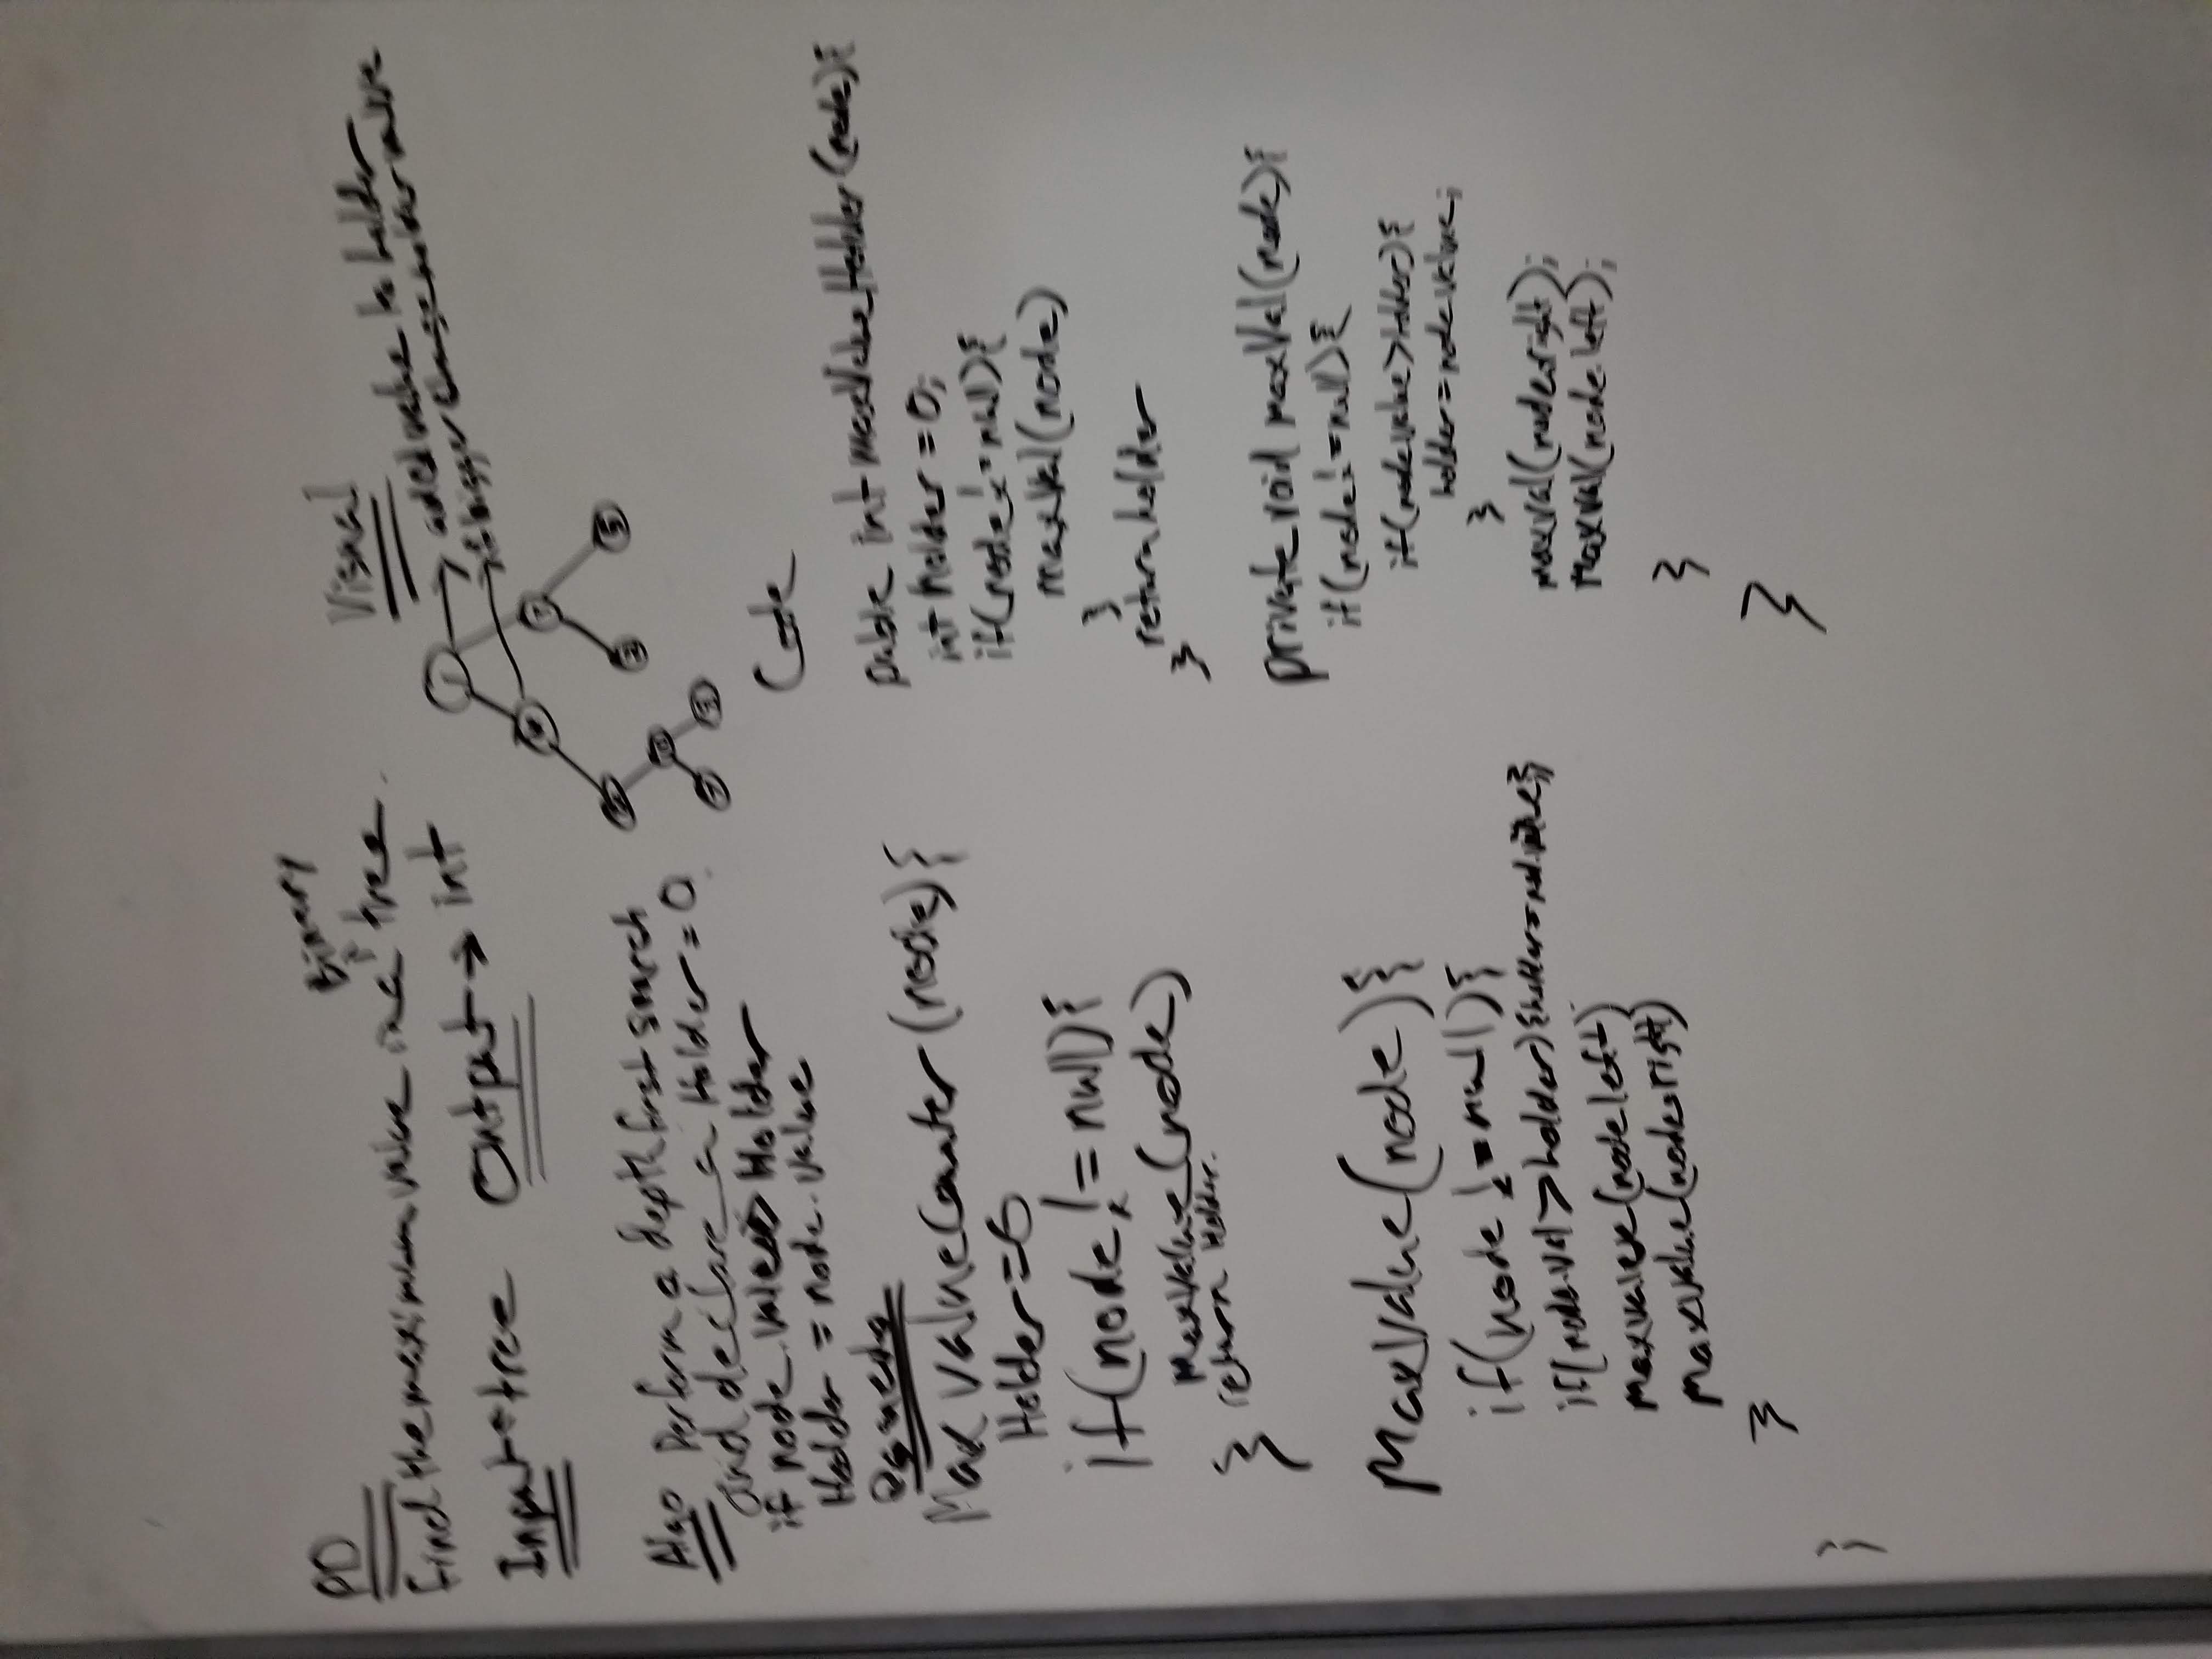 PD
Binary
find the maximum value in a tree.
Input → tree Output → int
Algo Perform a depth first search
and declare a Holder = 0
if node.value > Holder
Holder = node.value
Max valueCounter (node) {
Holder = 0
if(node != null){
MaxValue(node)
} return Holder.
MaxValue(node){
if(node != null){
if(node.val > holder) {holder = nod.value}
Maxvalue(node.left)
MaxValue(node.right)
}
}
Visual
1 → added value to holder
if bigger change holder value
7
3 5
Code
public int maxValueHolder (node){
int holder = 0;
if(node != null){
maxVal(node)
}
return holder
}
private void maxVal(node){
if(node != null){
if(node.value > holder){
holder = node.value;
}
maxval(node.right);
Maxval(node.left);
}
}